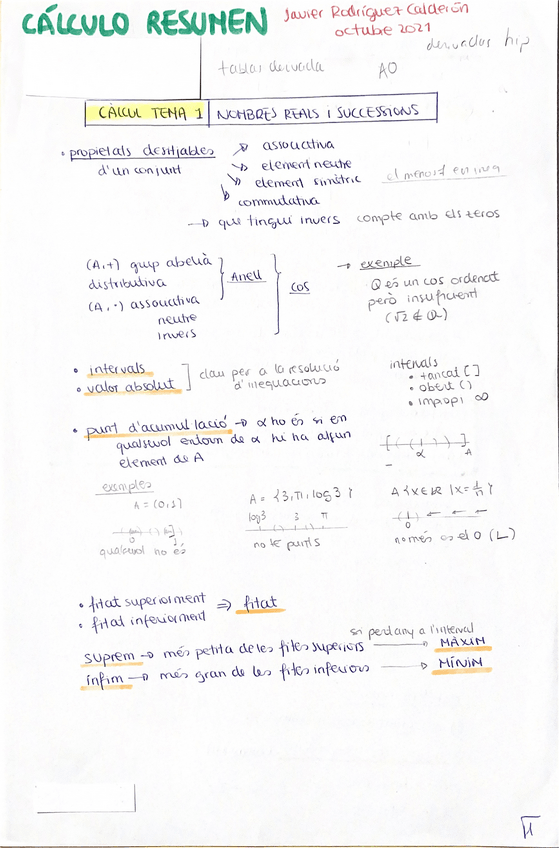 CÁLCULO RESUMEN
Javier Rodríguez Calderón
octubre 2021
derivadas hip
tablas derivada AO
CÀLCUL TEMA 1 | NOMBRES REALS I SUCCESSIONS
• propietats desitjables
d'un conjunt
→ associativa
→ element neutre
→ element simètric
→ commutativa
→ que tingui invers compte amb els zeros
(A,+) grup abelià
distributiva
(A,·) associativa
neutre
invers
Anell
cos
→ exemple
Q és un cos ordenat
però insuficient
(√2 ∉ Q)
• intervals
• valor absolut
clau per a la resolució
d'inequacions
intervals
• tancat [ ]
• obert ( )
• impropi ∞
• punt d'acumulació → α ho és si en
qualsevol entorn de α hi ha algun
element de A
α A
exemples
A = (0,1]
0 1
qualsevol ho és
A = {3, π, log 3}
log3 3 π
no té punts
A {x∈ℝ | x = 1/n}
0
només es el 0 (L)
• fitat superiorment
• fitat inferiorment
⇒ fitat
si pertany a l'interval
suprem → més petita de les fites superiors → MÀXIM
ínfim → més gran de les fites inferiors → MÍNIM